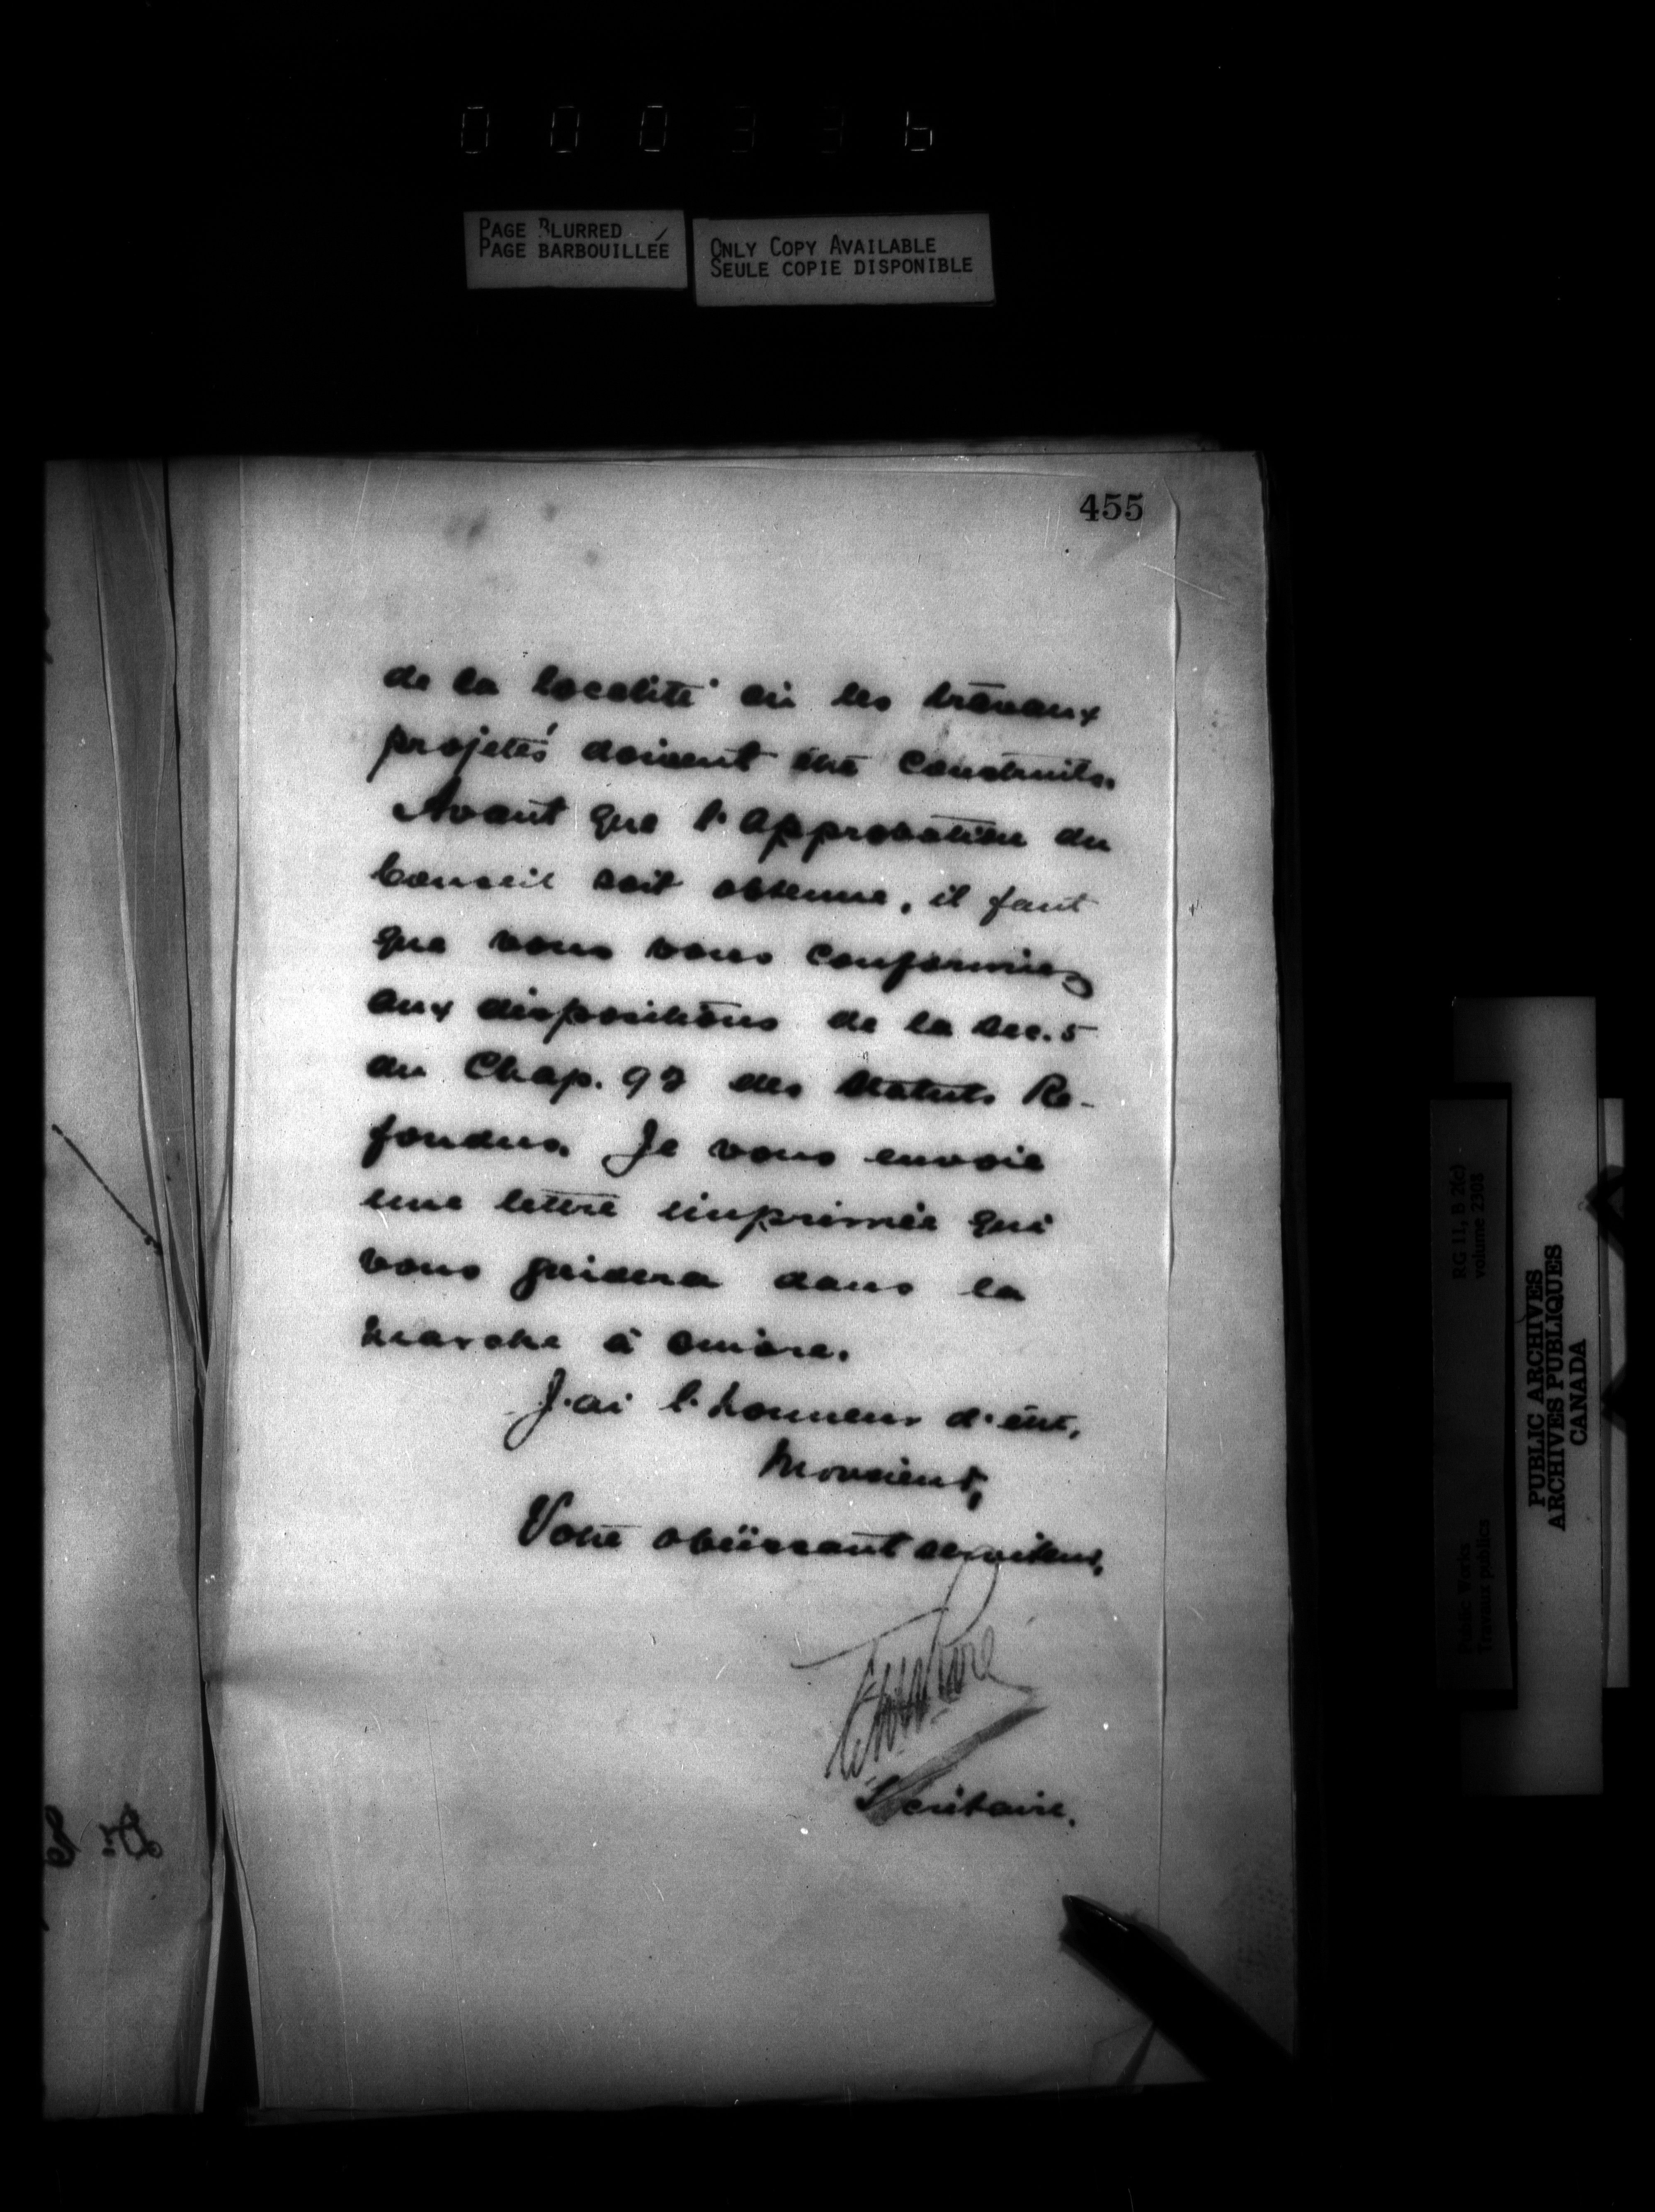 000336
PAGE BLURRED
PAGE BARBOUILLÉE
ONLY COPY AVAILABLE
SEULE COPIE DISPONIBLE
455
de la localité où les travaux
projetés doivent être construits.
Avant que l'approbation du
Conseil soit obtenue, il faut
que vous vous conformiez
aux dispositions de la sec. 5
du Chap. 92 des Statuts Re-
fondus. Je vous envoie
une lettre imprimée qui
vous guidera dans la
marche à suivre.
J'ai l'honneur d'être,
Monsieur,
Votre obéissant serviteur,
Secrétaire.
RG 11, B 2(c)
volume 2308
Public Works
Travaux publics
PUBLIC ARCHIVES
ARCHIVES PUBLIQUES
CANADA